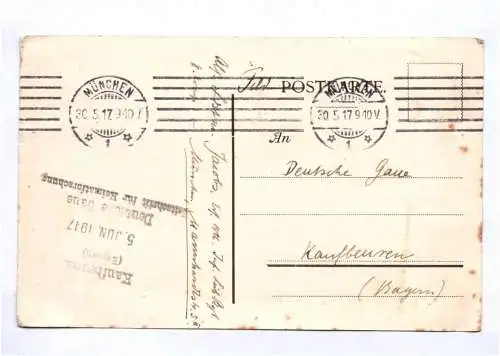 Feld POSTKARTE.
MÜNCHEN
30.5.17.9-10.V.
1
MÜNCHEN
30.5.17.9-10.V.
1
An
Deutsche Gaue
Kaufbeuren
(Bayern)
Jacobs,
München,
Zeitschrift für Heimatforschung
Deutsche Gaue
5. JUN. 1917
Kaufbeuren
(Bayern)